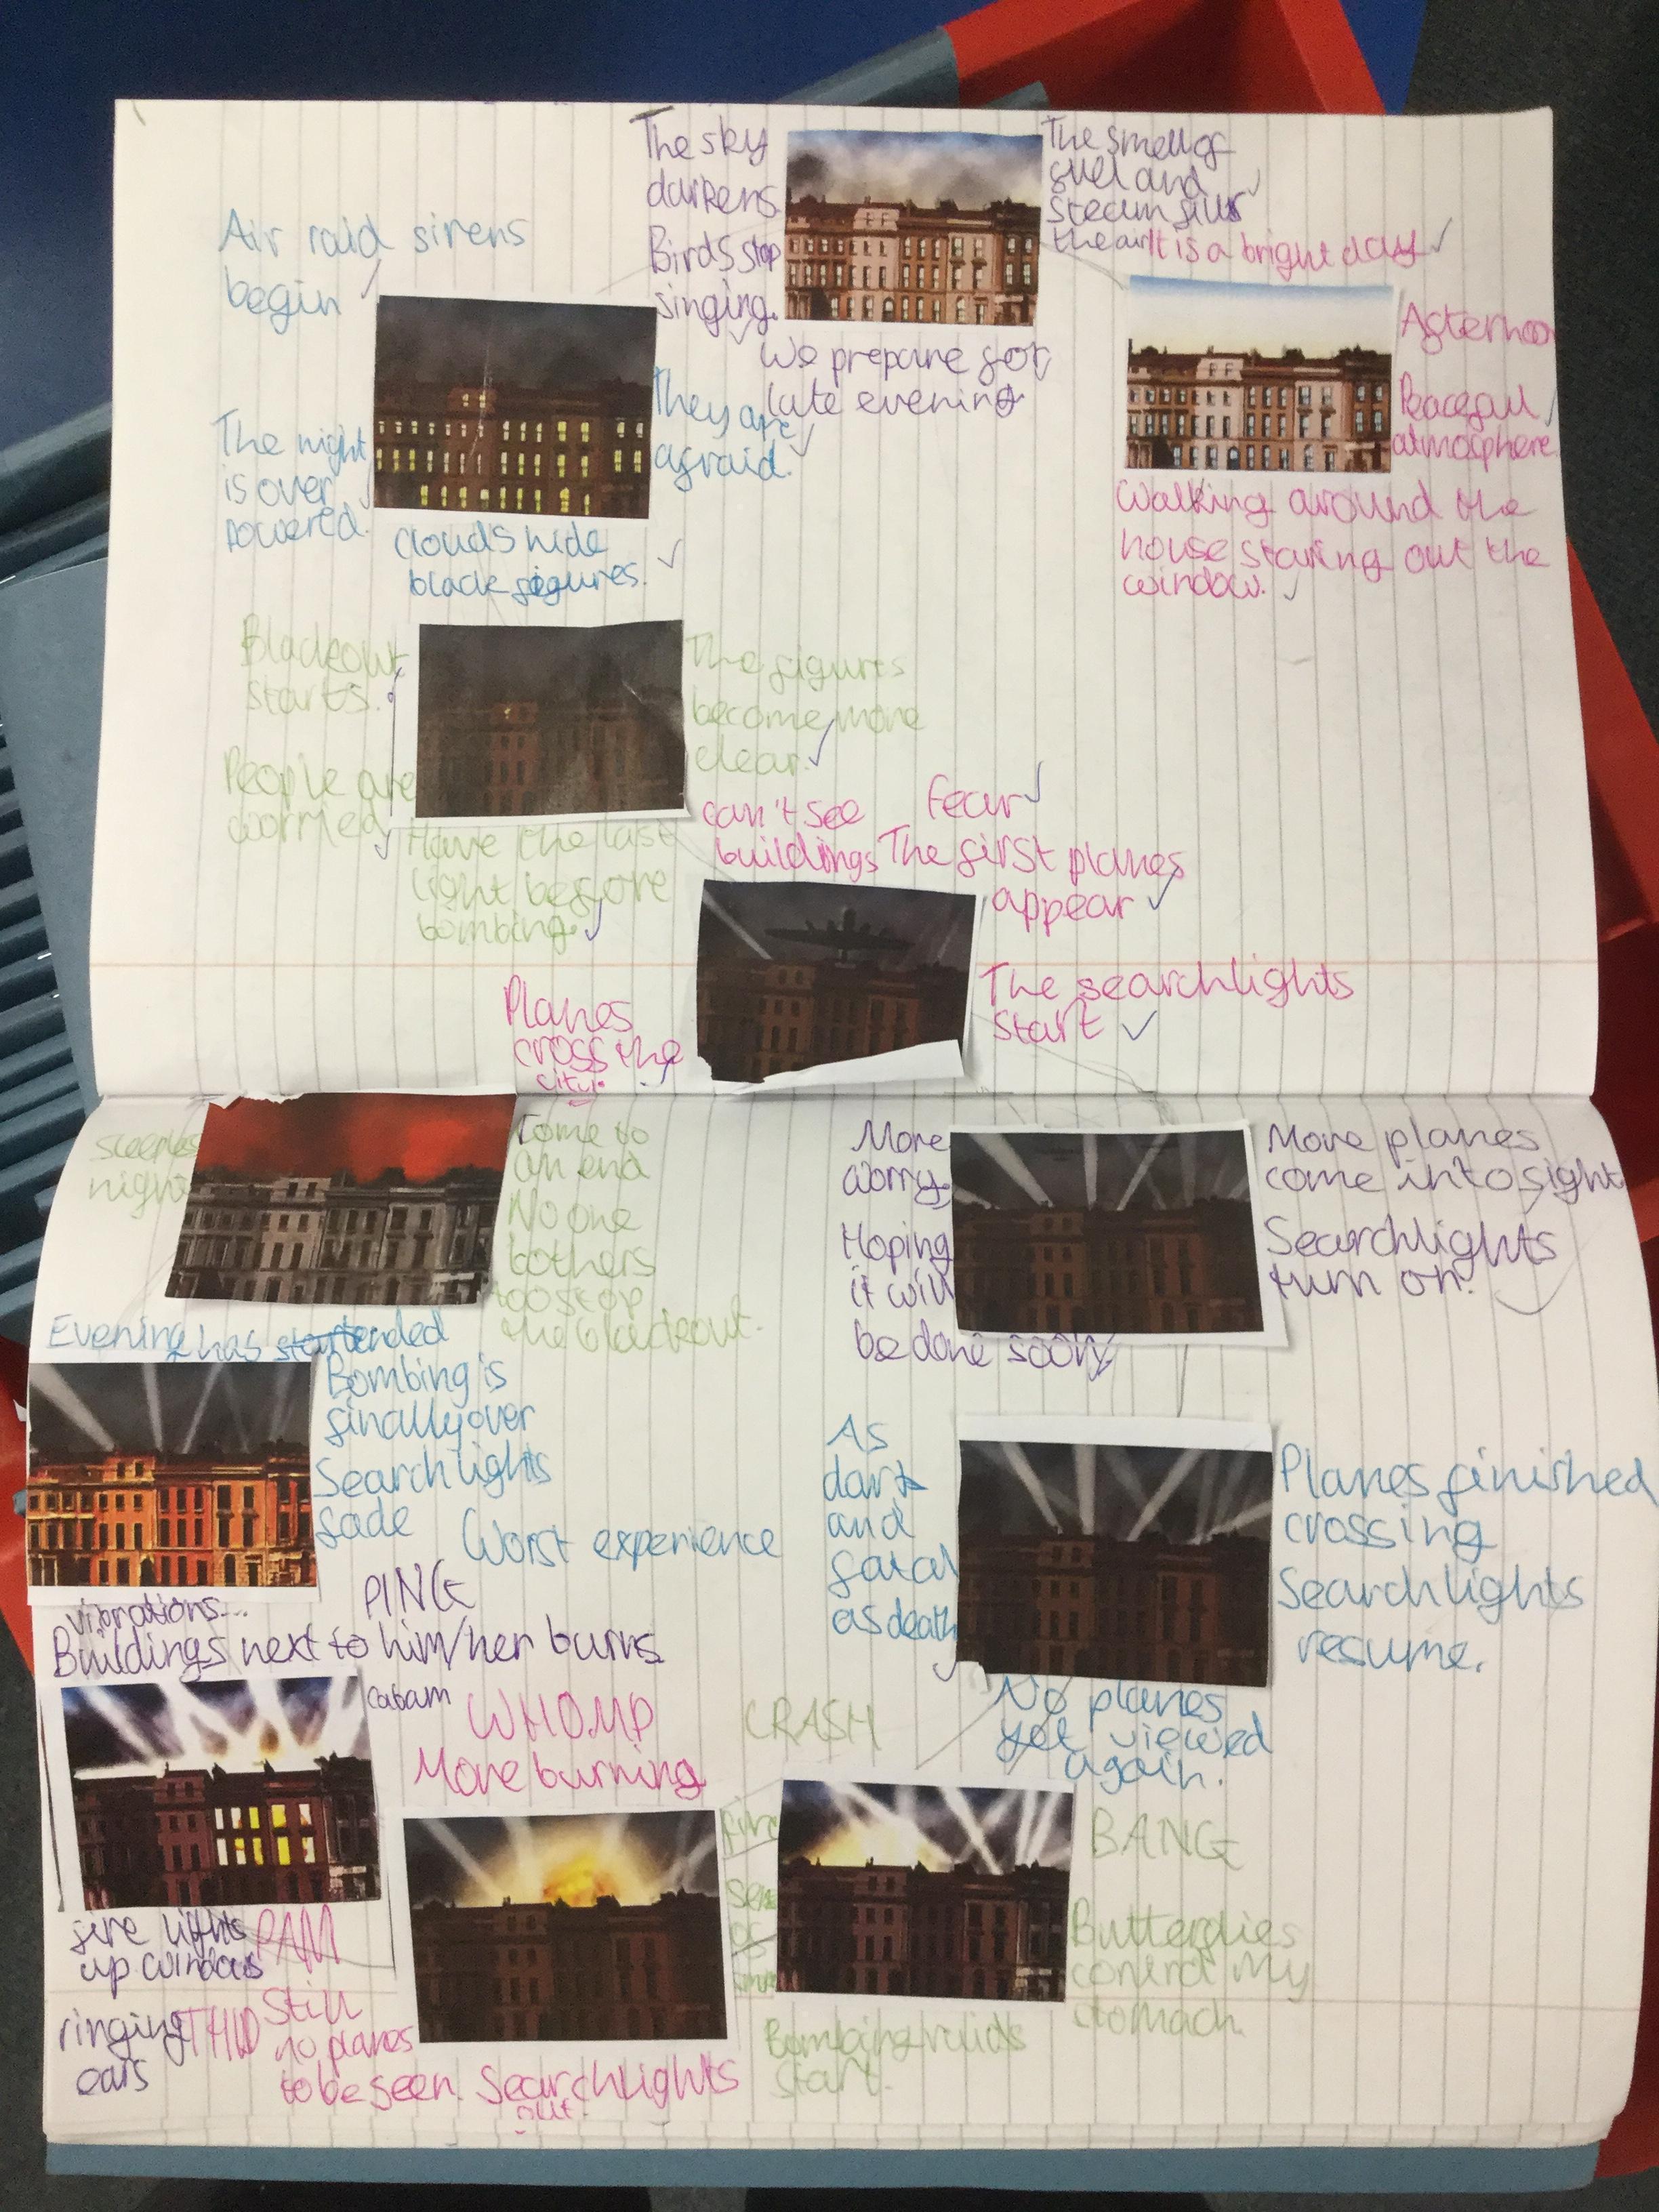 It is a bright day
Afternoon
Peaceful
atmosphere.
Walking around the
house staring out the
window.
The sky
darkens.
Birds stop
singing.
The smell of
fuel and
steam fills
the air
We prepare for
late evening
Air raid sirens
begin
The night
is over
powered.
They are
afraid.
Clouds hide
black figures.
Blackout
starts.
People are
worried
The figures
become more
clear.
Have the last
light before
bombing.
can't see
buildings
Fear
The first planes
appear
Planes
cross the
city.
The searchlights
start
More
worry.
Hoping
it will
be done soon
More planes
come into sight
Searchlights
turn on.
As
dark
and
fatal
as death
Planes finished
crossing
Searchlights
resume.
No planes
yet viewed
again.
CRASH
BANG
Butterflies
control my
stomach.
Bombing raids
start.
fire
of
WHOMP
More burning
PAM
THUD
Still
no planes
to be seen.
Searchlights
out.
PING
vibrations...
Buildings next to him/her burns
Cabam
fire lights
up windows
ringing
ears
Evening has ended
Bombing is
finally over
Searchlights
fade
Worst experience
night
Come to
an end
No one
bothers
too stop
the blackout.